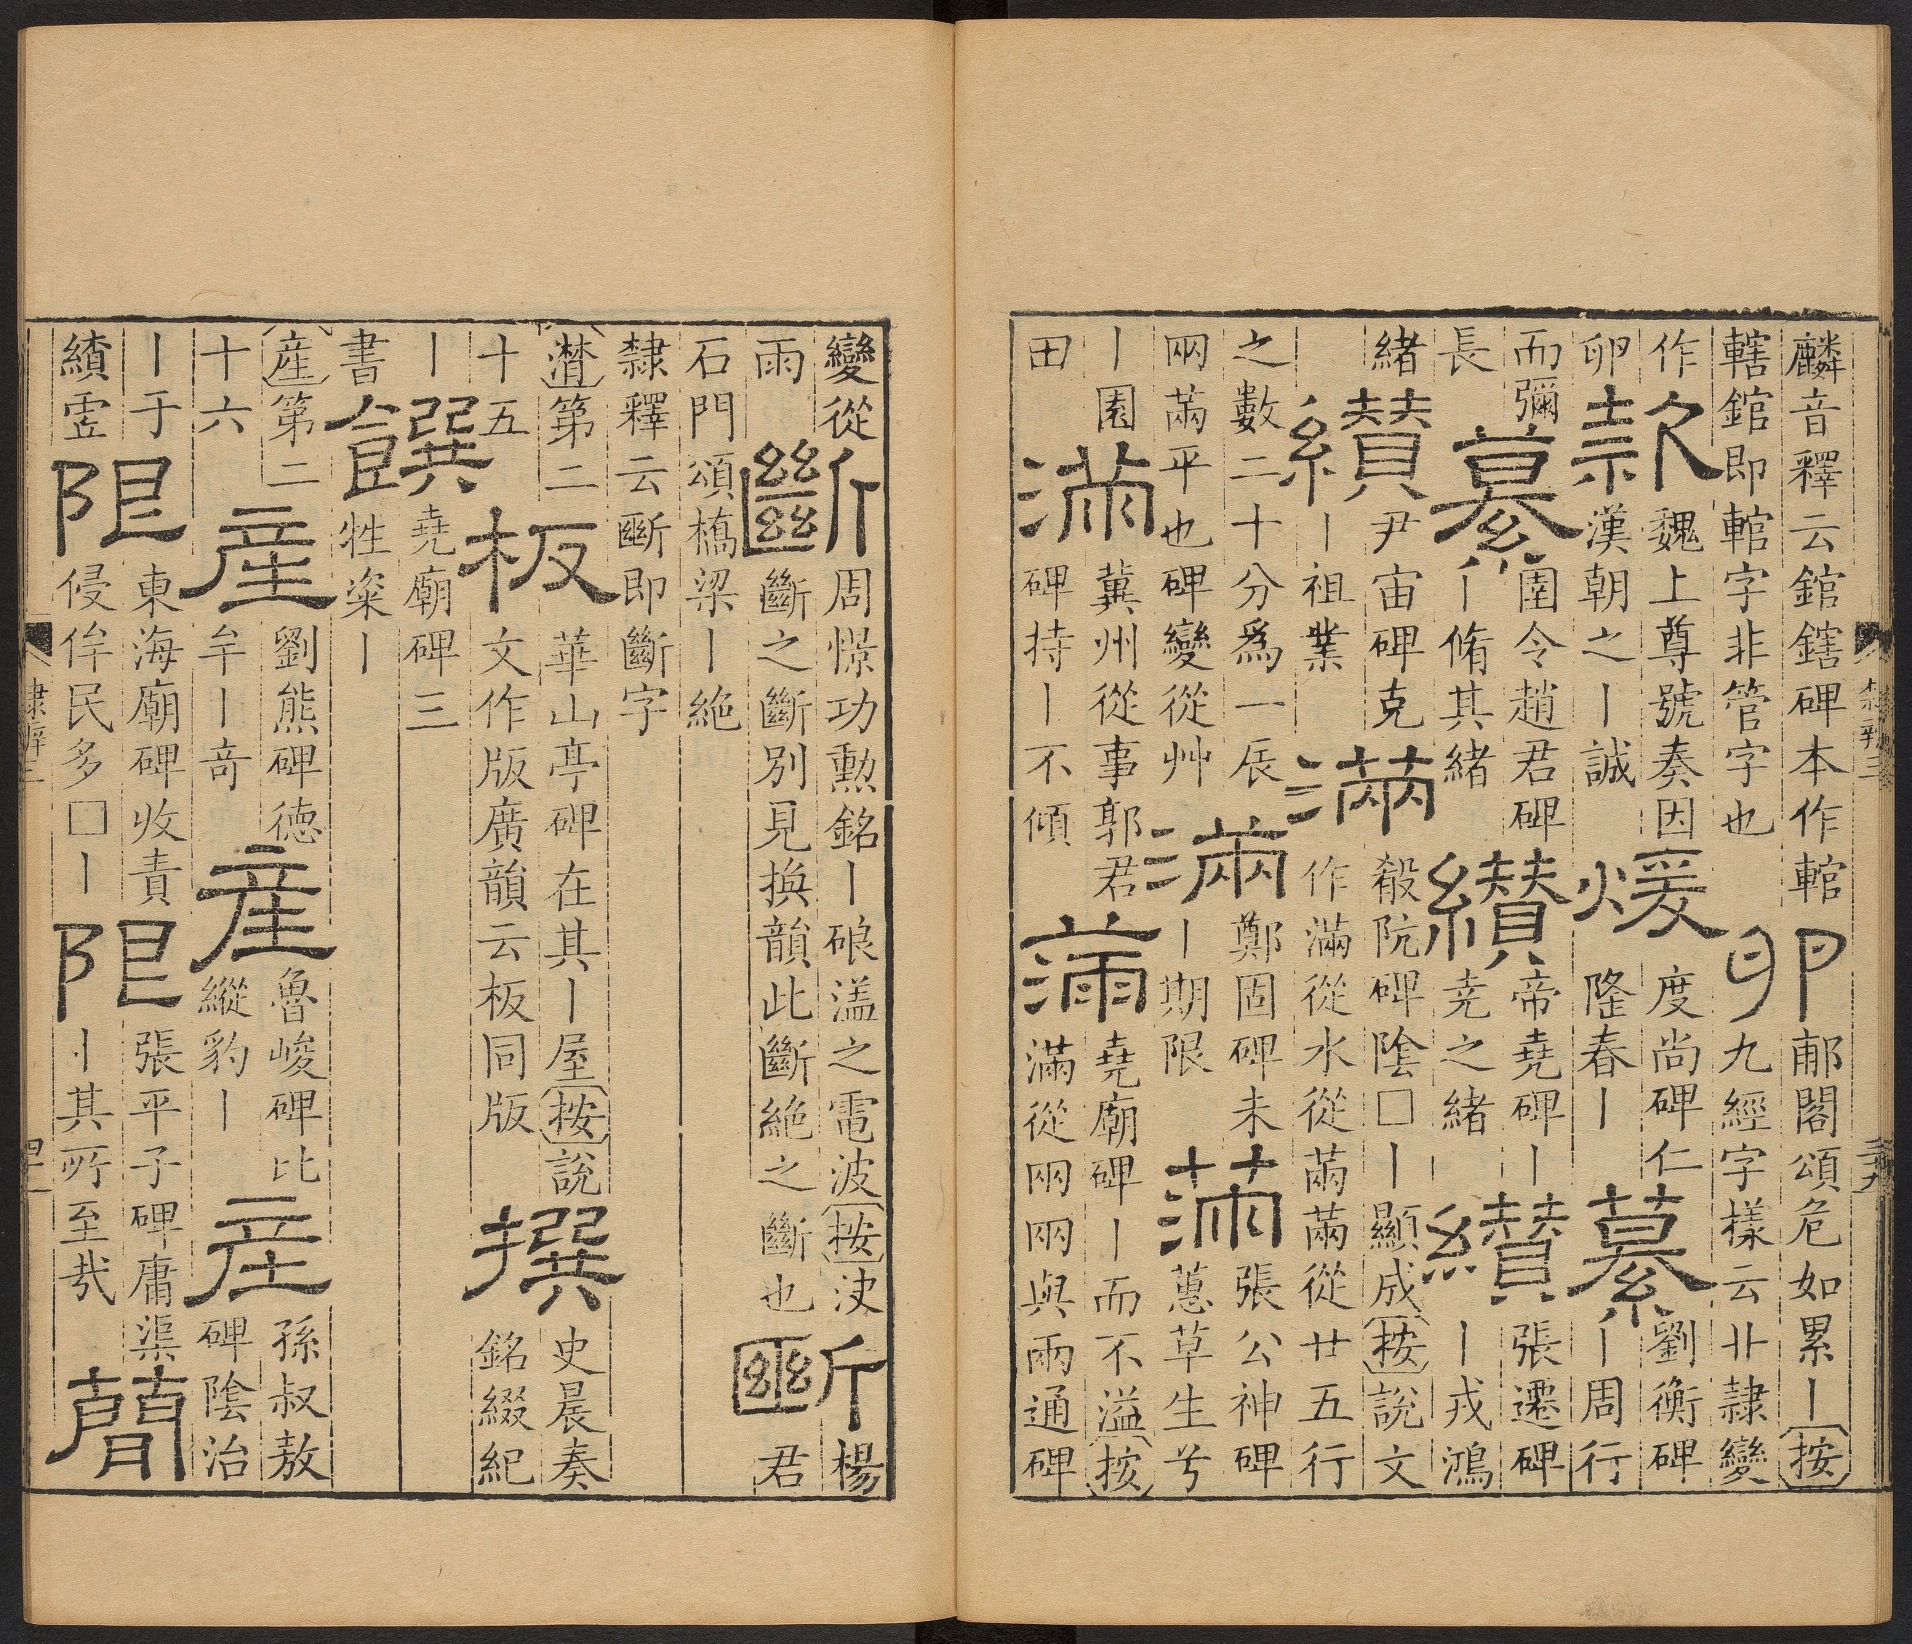 麟音釋云錧鎋碑本作輨
轄錧即輨字非管字也
卵
郙閣頌危如累丨按
九經字樣云卝隸變
作
卵
款
魏上尊號奏因
漢朝之丨誠
煖
度尚碑仁
隆春丨
纂
劉衡碑
丨周行
而彌
長
纂
圉令趙君碑
丨脩其緒
纘
帝堯碑丨
堯之緒
纘
張遷碑
丨戎鴻
緒
纘
尹宙碑克
丨祖業
滿
殽阬碑陰□丨顯成按說文
作滿從水從㒼㒼從廿五行
之數二十分爲一辰
㒳㒼平也碑變從艸
滿
鄭固碑未
丨期限
滿
張公神碑
蕙草生兮
丨園
田
滿
冀州從事郭君
碑持丨不傾
滿
堯廟碑丨而不溢按
滿從㒳㒳與兩通碑
變從
雨
斷
周憬功勳銘丨硠溘之電波按決
斷之斷別見換韻此斷絶之斷也
斷
楊
君
石門頌橋梁丨絶
隸釋云㫁即斷字
濽第二
十五
板
華山亭碑在其丨屋按說
文作版廣韻云板同版
撰
史晨奏
銘綴紀
丨
書
饌
堯廟碑三
牲粢丨
產第二
十六
產
劉熊碑德
牟丨奇
產
魯峻碑比
縱豹丨
產
孫叔敖
碑陰治
丨于
績虚
限
東海廟碑收責
侵侔民多□丨
限
張平子碑庸渠
丨其所至哉
簡